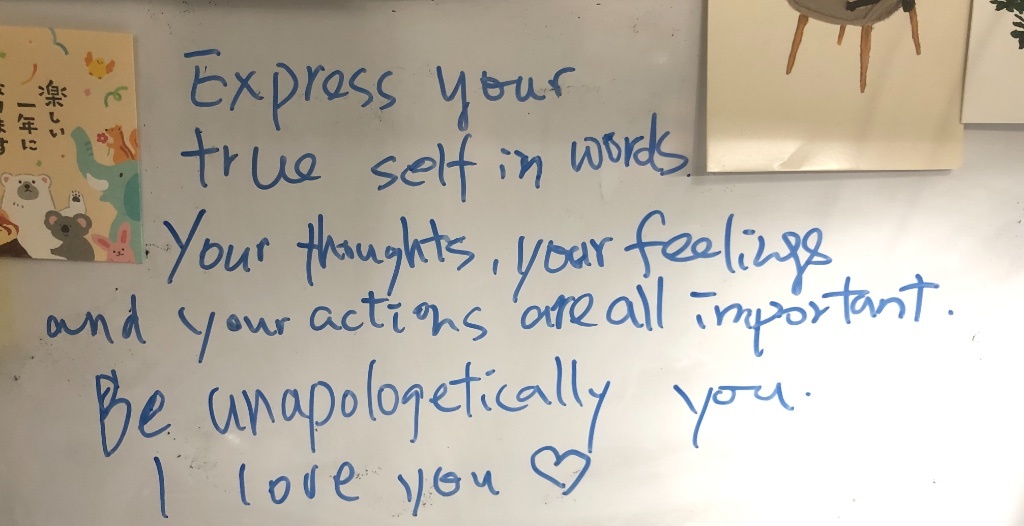 Express your
true self in words.
Your thoughts, your feelings
and your actions are all important.
Be unapologetically you.
I love you ♡
楽しい
一年に